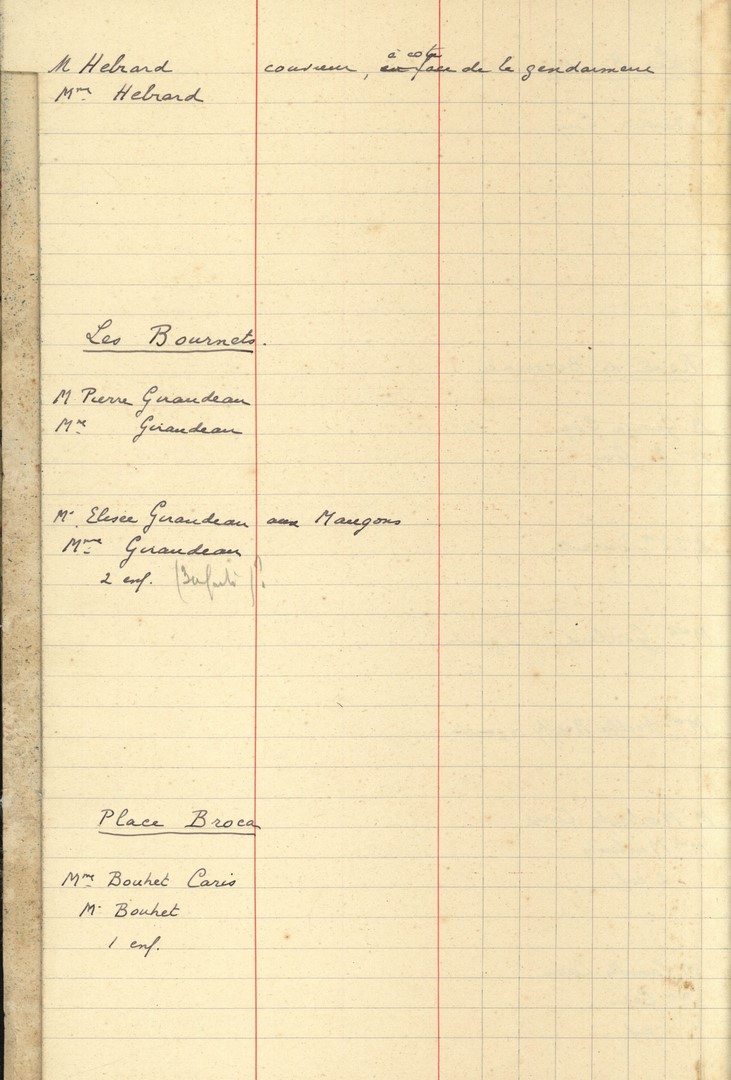 M Hebrard couvreur, à côté en face de la gendarmerie
Mme Hebrard
Les Bournets.
M Pierre Giraudeau
Me Giraudeau
Mr Elisée Giraudeau aux Maugons
Mme Giraudeau
2 enf. (3 enfants)?
Place Broca
Mme Bouhet Caris
Mr Bouhet
1 enf.